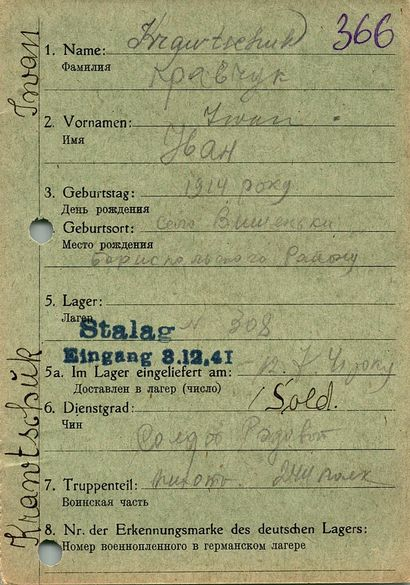 366
1. Name: Krawtschuk
Фамилия Кравчук
2. Vornamen: Iwan
Имя Іван
3. Geburtstag: 1914 року
День рождения
4. Geburtsort: село Вишеньки
Место рождения
Бориспольского Району
5. Lager: 308
Лагерь
Stalag
Eingang 3.12.41
5a. Im Lager eingeliefert am: 12. 7 41 року
Доставлен в лагер (число)
6. Dienstgrad: Sold.
Чин
Солдат Рядовой
7. Truppenteil: пихота. полк
Воинская часть
8. Nr. der Erkennungsmarke des deutschen Lagers:
Номер военнопленного в германском лагере
Krawtschuk Iwan